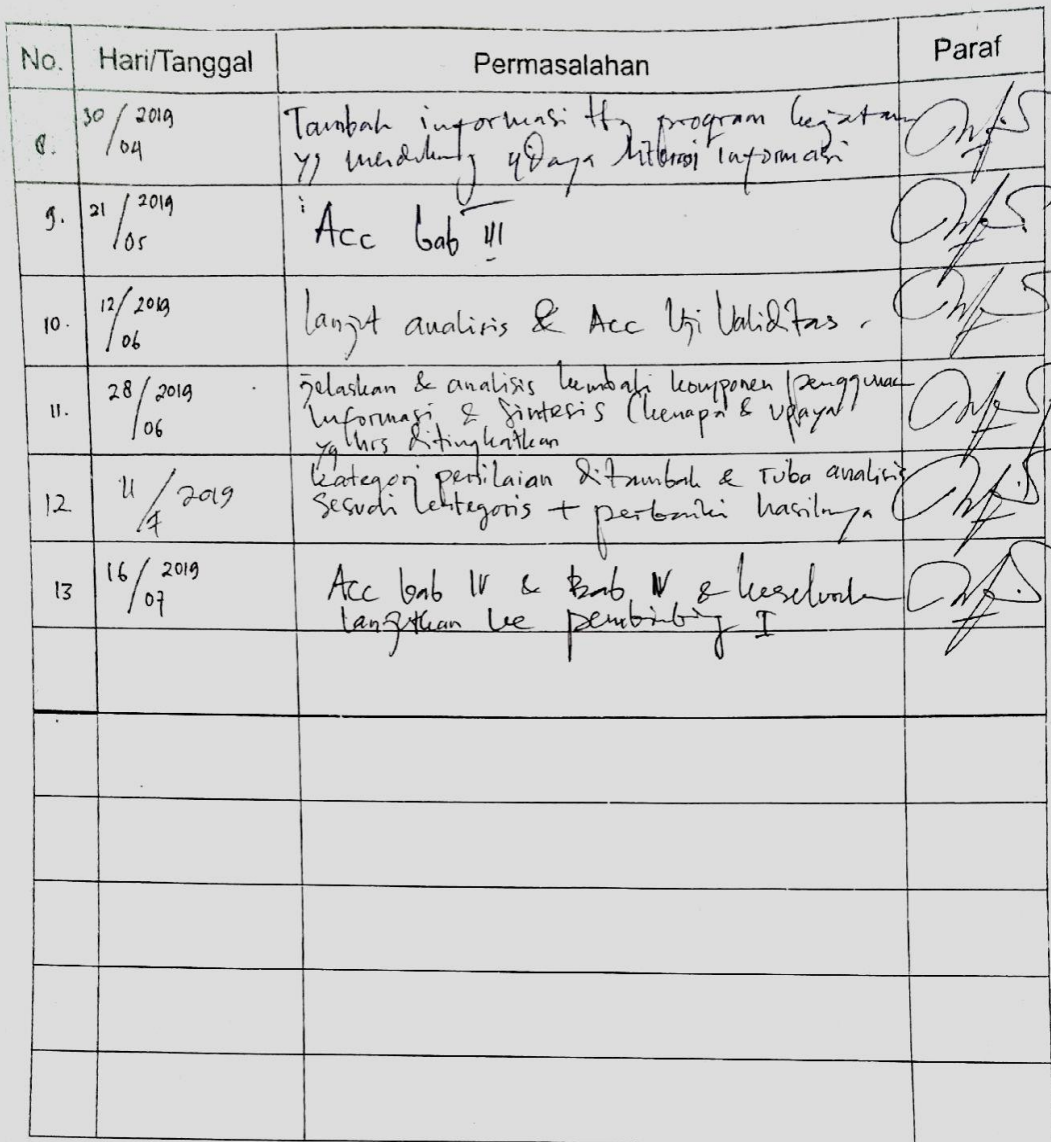 No. Hari/Tanggal Permasalahan Paraf
8. 30/04 2019 Tambah informasi ttg program kegiatan
yg mendukung upaya literasi informasi
9. 21/05 2019 Acc bab III
10. 12/06 2019 lanjut analisis & Acc Uji Validitas.
11. 28/06 2019 Jelaskan & analisis kembali komponen penggunaan
informasi & sintesis (kenapa & upaya
yg hrs ditingkatkan
12 11/7 2019 kategori penilaian ditambah & analisis
sesuai + perbaiki hasilnya
13 16/07 2019 Acc bab IV & Bab V & keseluruhan
lanjutkan ke pembimbing I